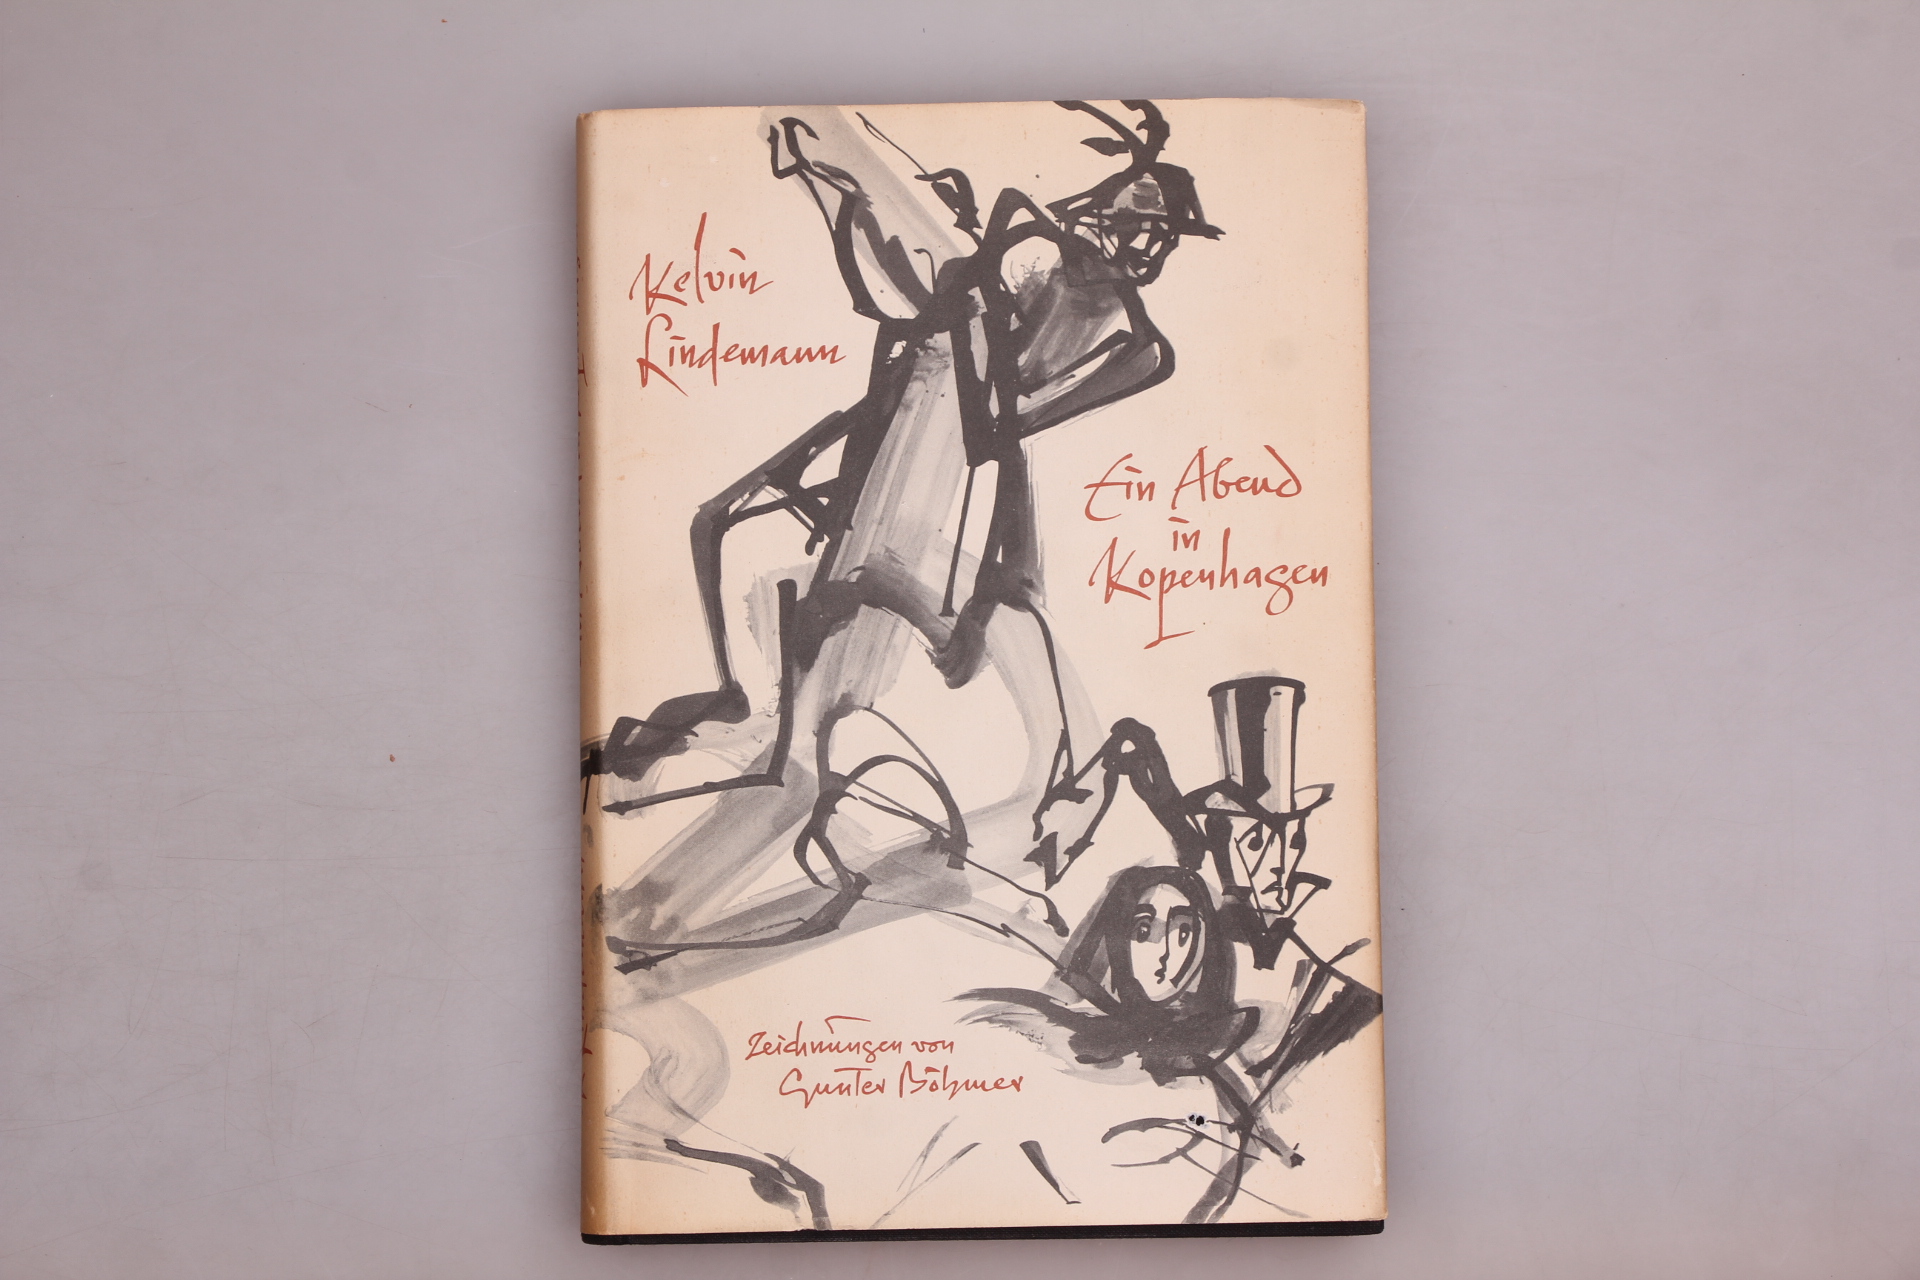 Kelvin
Lindemann
Ein Abend
in
Kopenhagen
Zeichnungen von
Gunter Böhmer